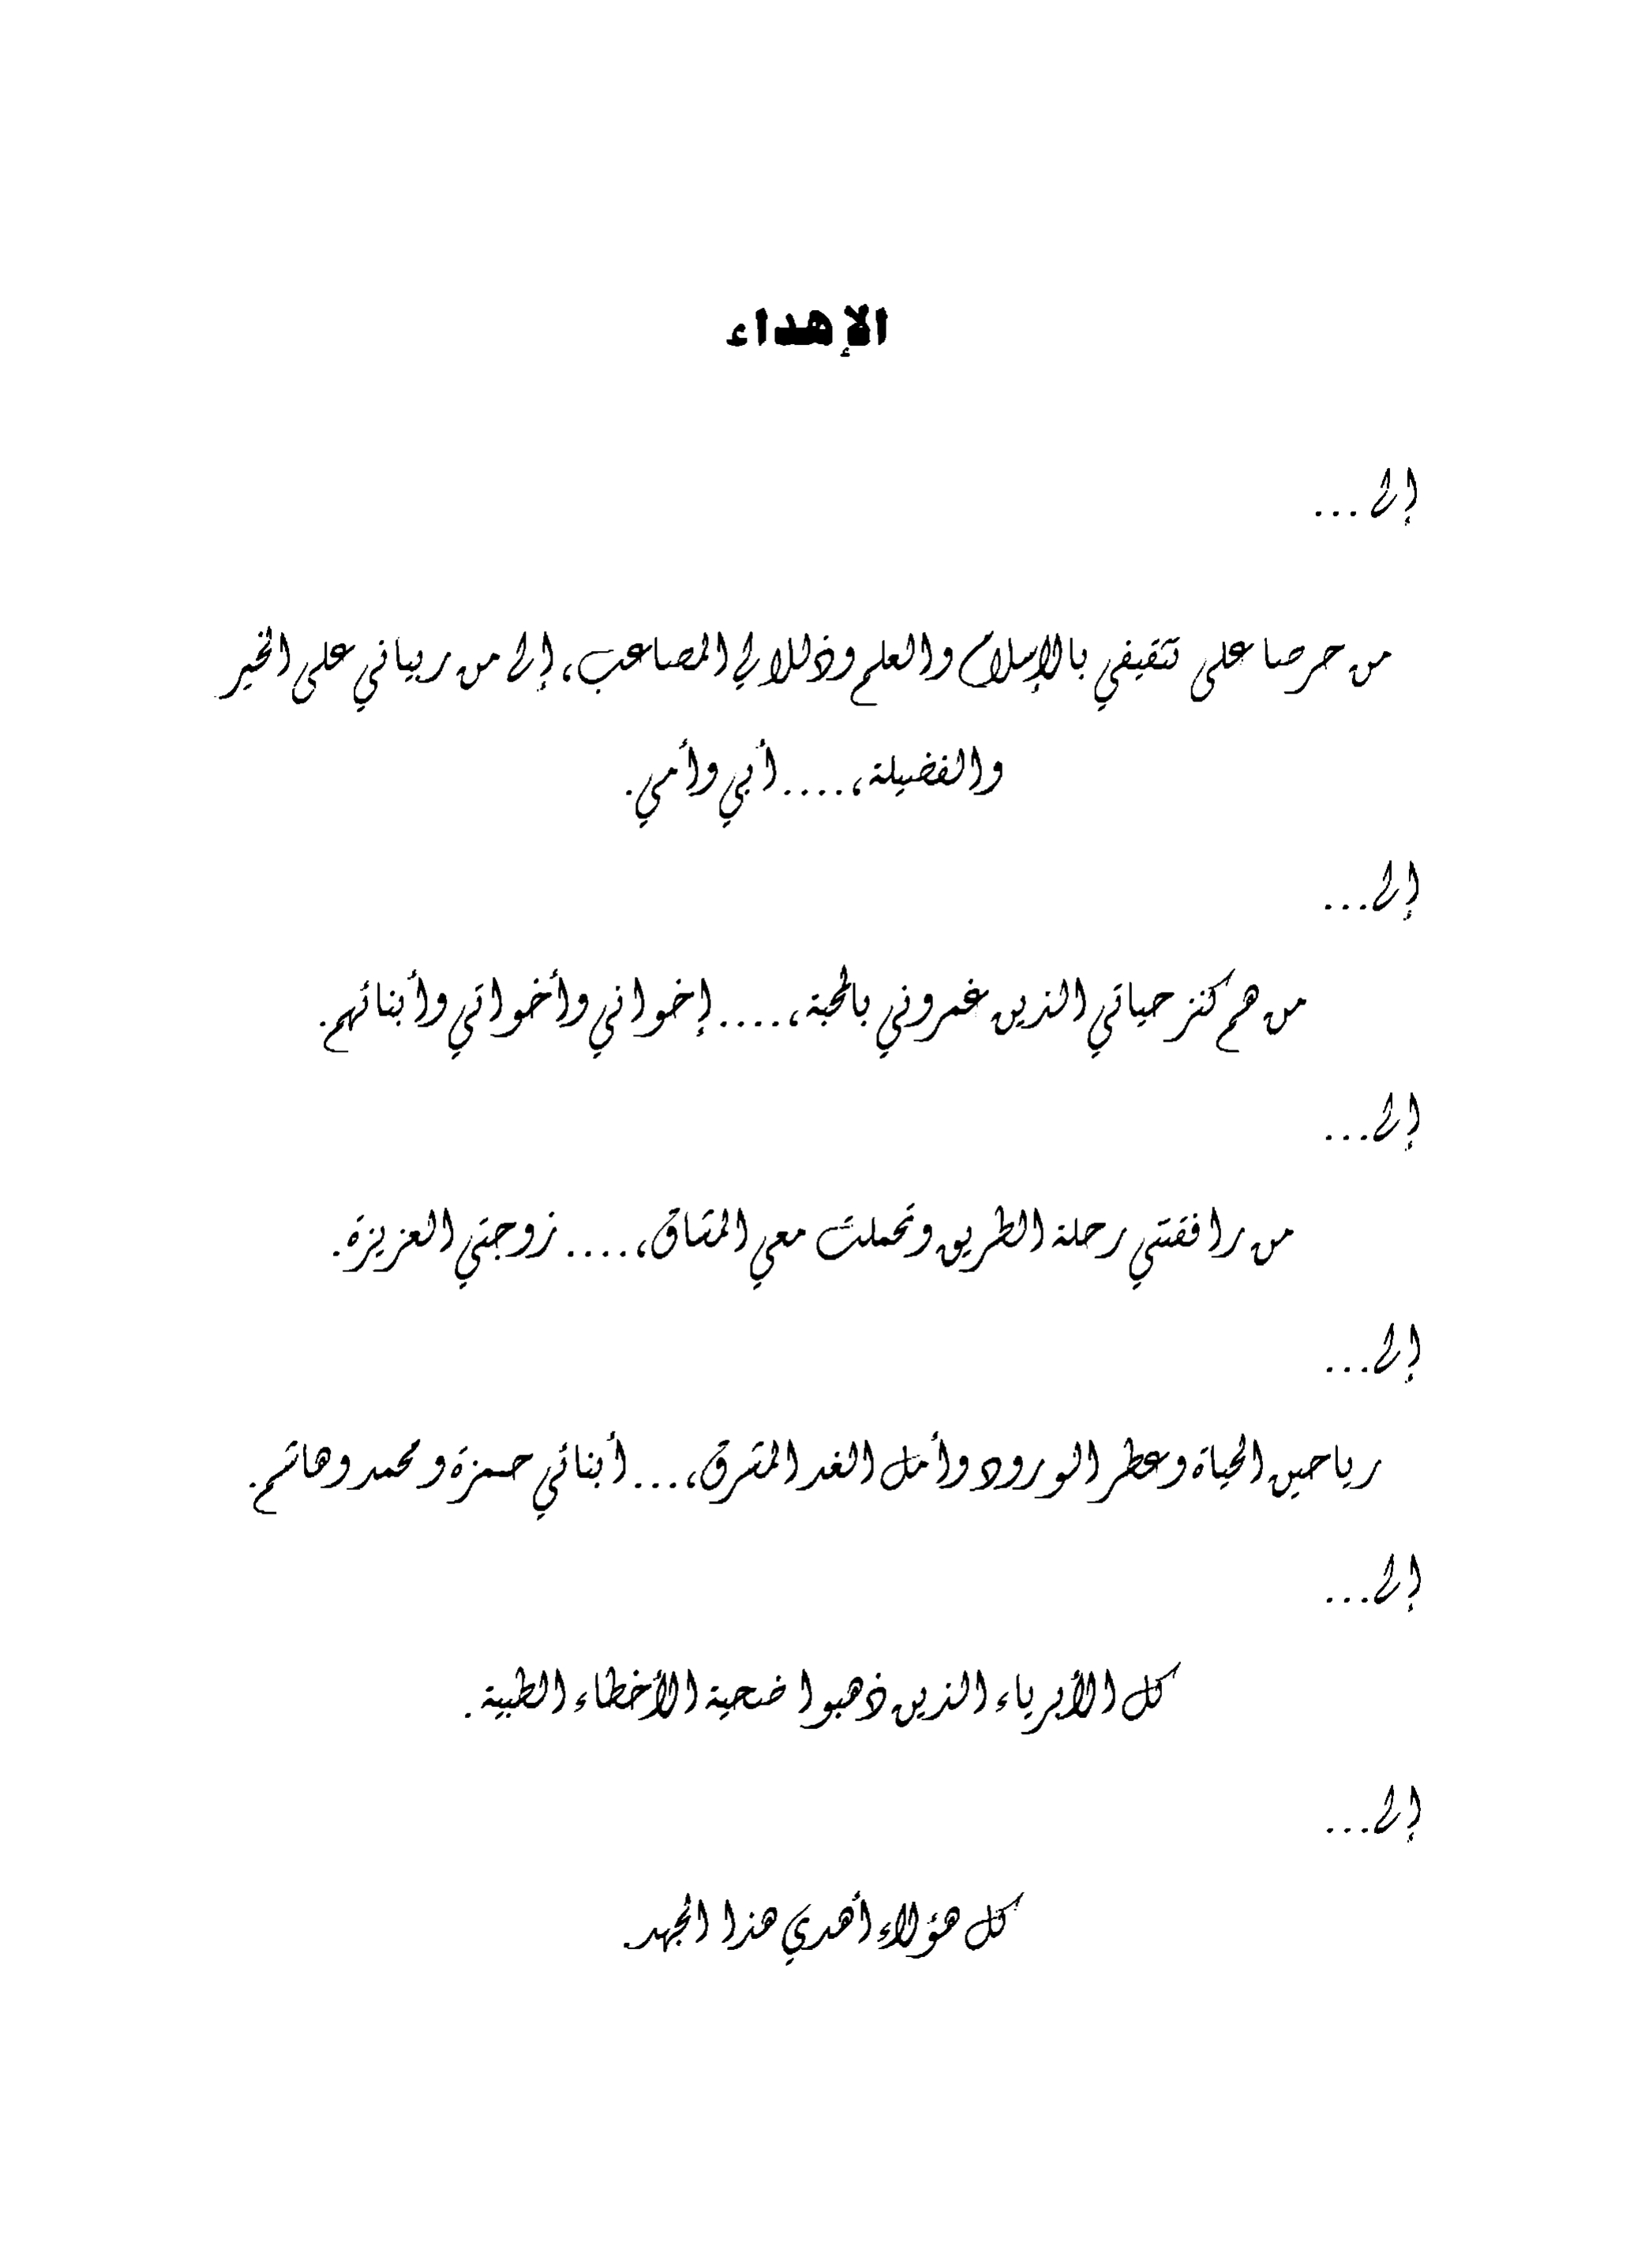 الإهداء
إلى ...
من حرصا على تثقيفي بالإسلام والعلم وذللا لي المصاعب، إلى من ربياني على الخير
والفضيلة،.... أبي وأمي.
إلى...
من هم كنز حياتي الذين غمروني بالمحبة،.... إخواني وأخواتي وأبنائهم.
إلى...
من رافقتني رحلة الطريق وتحملت معي المشاق،.... زوجتي العزيزة.
إلى...
رياحين الحياة وعطر الورود وأمل الغد المشرق،... أبنائي حمزة ومحمد وهاشم.
إلى...
كل الأبرياء الذين ذهبوا ضحية الأخطاء الطبية.
إلى...
كل هؤلاء أهدي هذا الجهد.